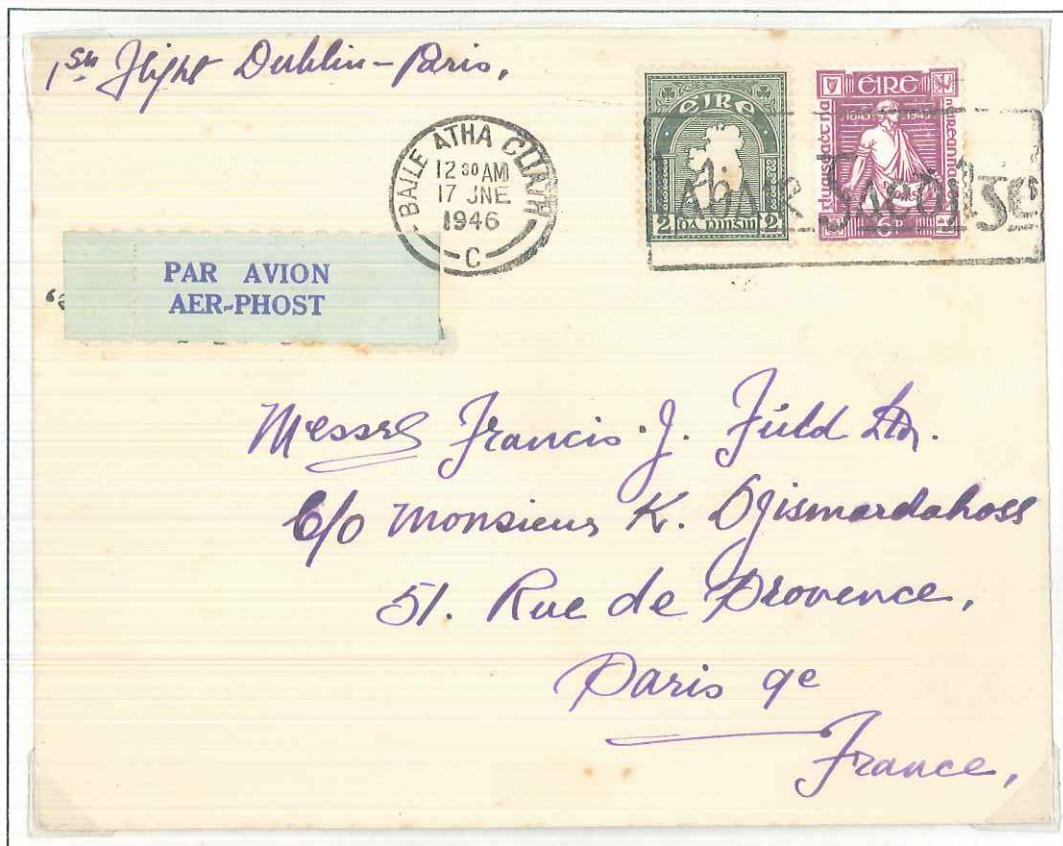 1st Flight Dublin-Paris,
BAILE ATHA CLIATH
12 30 AM
17 JNE
1946
C
ÉIRE
2 2
EIRE
1845 1945
6P
Labhair Gaeḋilge
PAR AVION
AER-PHOST
Messrs Francis. J. Field Ltd.
c/o Monsieur K. Djismardahoss
51. Rue de Provence,
Paris 9e
France,